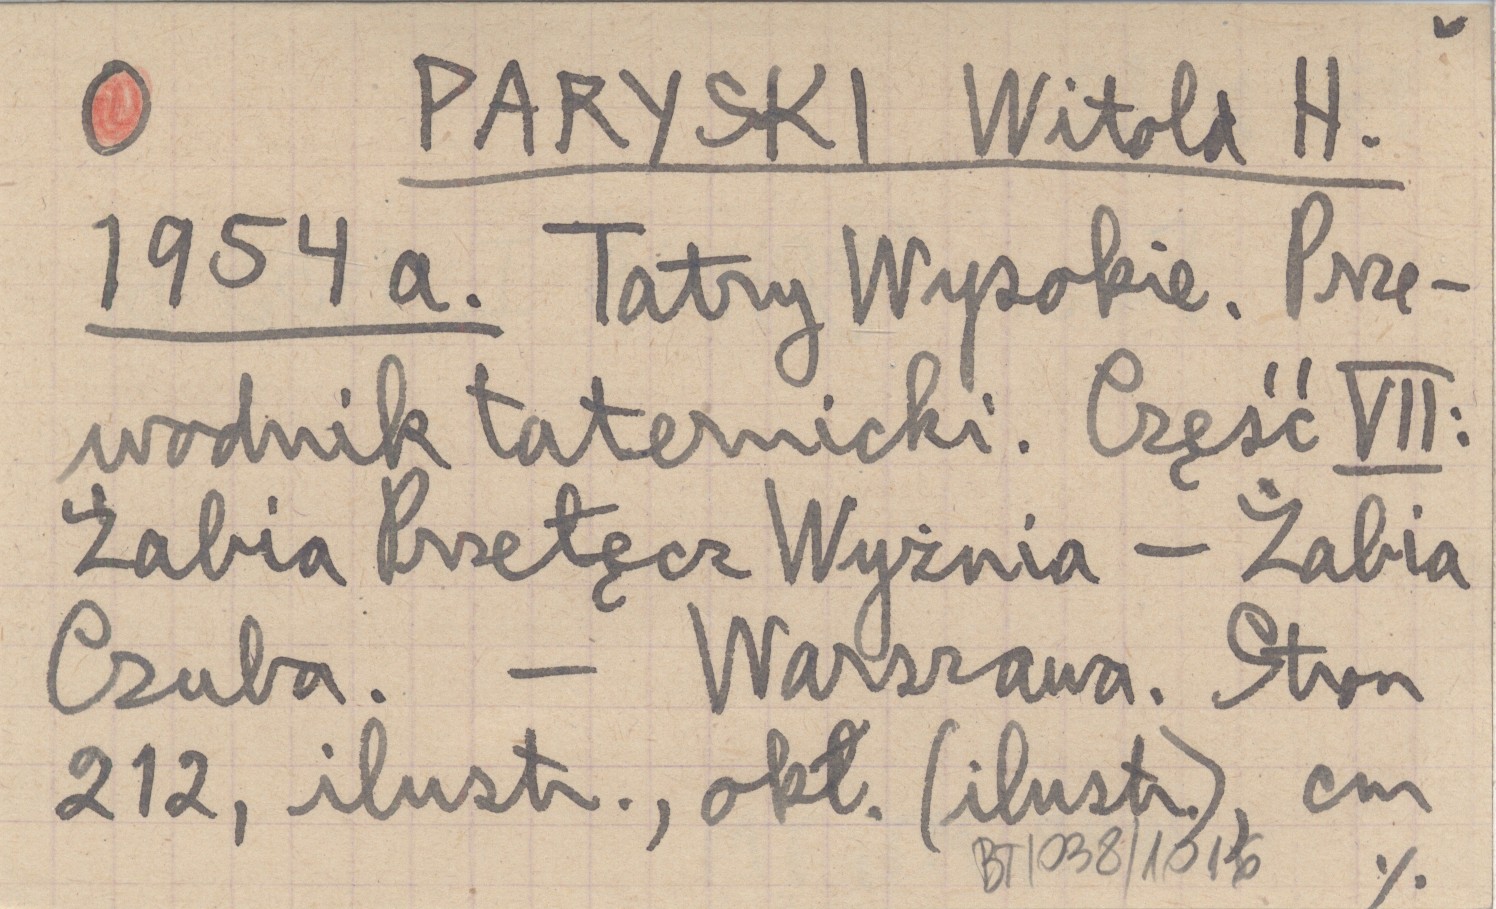 PARYSKI Witold H.
1954 a. Tatry Wysokie. Prze-
wodnik taternicki. Część VII:
Żabia Przełęcz Wyżnia – Żabia
Czuba. – Warszawa. Stron
212, ilustr., okł. (ilustr.), cm
BT/038/10
./.